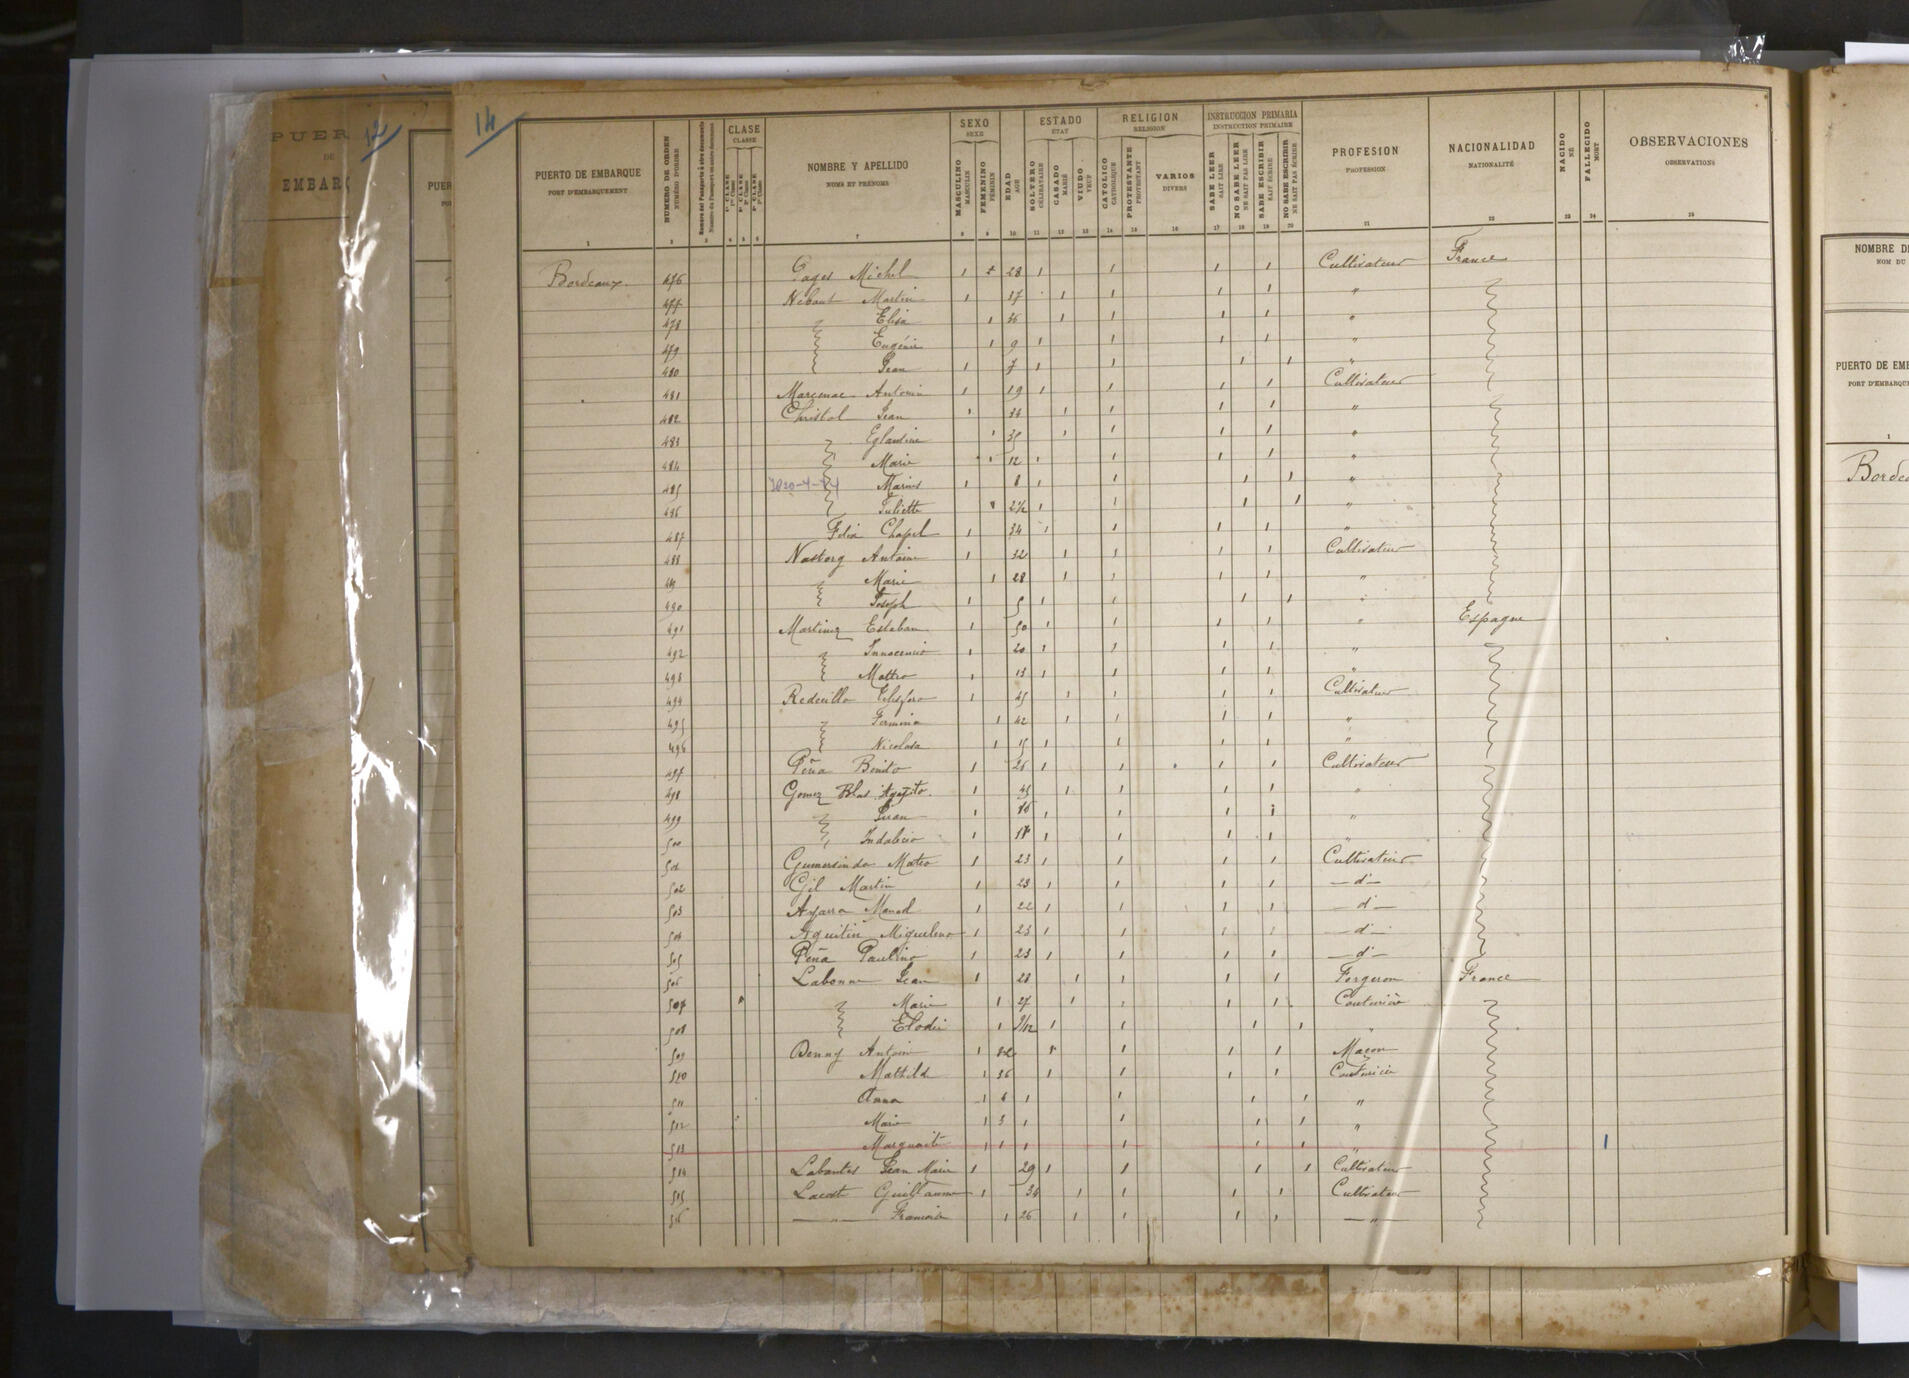 PUER
DE
EMBAR
12
PUER
14
PUERTO DE EMBARQUE
PORT D'EMBARQUEMENT
NUMERO DE ORDEN
NUMÉRO D'ORDRE
CLASE
CLASSE
1ª CLASE
2ª CLASE
3ª CLASE
NOMBRE Y APELLIDO
NOMS ET PRÉNOMS
SEXO
SEXE
MASCULINO
MASCULIN
FEMENINO
FÉMININ
EDAD
AGE
ESTADO
ETAT
SOLTERO
CÉLIBATAIRE
CASADO
MARIÉ
VIUDO
VEUF
RELIGION
RELIGION
CATOLICO
CATHOLIQUE
PROTESTANTE
PROTESTANT
VARIOS
DIVERS
INSTRUCCION PRIMARIA
INSTRUCTION PRIMAIRE
SABE LEER
SAIT LIRE
NO SABE LEER
NE SAIT PAS LIRE
SABE ESCRIBIR
SAIT ÉCRIRE
NO SABE ESCRIBIR
NE SAIT PAS ÉCRIRE
PROFESION
PROFESSION
NACIONALIDAD
NATIONALITÉ
NACIDO
NÉ
FALLECIDO
MORT
OBSERVACIONES
OBSERVATIONS
1 2 3 4 5 6 7 8 9 10 11 12 13 14 15 16 17 18 19 20 21 22 23 24 25
Bordeaux. 476 Michel 1 28 1 1 1 1 Cultivateur France
477 Martin 1 37 1 1 1 1 "
478 Elisa 1 36 1 1 1 1 "
479 Eugénie 1 9 1 1 1 1 "
480 Jean 1 7 1 1 1 1 "
481 Marcenac Antonin 1 19 1 1 1 1 Cultivateur
482 Christol Jean 1 34 1 1 1 1 "
483 Eglantine 1 35 1 1 1 1 "
484 Marie 1 12 1 1 1 1 "
485 Marius 1 8 1 1 1 1 "
486 Juliette 1 2½ 1 1 1 1 "
487 Felix Chapel 1 34 1 1 1 "
488 Nastorg Antoine 1 32 1 1 1 1 Cultivateur
489 Marie 1 28 1 1 1 1 "
490 Joseph 1 5 1 1 1 1 "
491 Martinez Esteban 1 50 1 1 1 1 " Espagne
492 Innocencio 1 20 1 1 1 1 "
493 Matteo 1 13 1 1 1 1 "
494 1 45 1 1 1 1 Cultivateur
495 1 42 1 1 1 1 "
496 Nicolasa 1 15 1 1 1 1 "
497 Peña Benito 1 26 1 1 1 1 Cultivateur
498 Gomez Blas Agapito. 1 45 1 1 1 1 "
499 Juan 1 1 1 1 1 "
500 Indalecio 1 1 1 1 1 "
501 Gumersindo Mateo 1 23 1 1 1 1 Cultivateur
502 Gil Martin 1 23 1 1 1 1 — d° —
503 Manuel 1 22 1 1 1 1 — d° —
504 1 23 1 1 1 1 — d° —
505 Peña Paulino 1 23 1 1 1 1 — d° —
506 Labonne Jean 1 28 1 1 1 1 Forgeron France
507 Marie 1 27 1 1 1 1 Couturière
508 Elodie 1 9/12 1 1 1 1 "
509 Denny Antoine 1 1 1 1 1 Maçon
510 Mathilde 1 36 1 1 1 1 Couturière
511 Anna 1 1 1 1 1 "
512 Marie 1 3 1 1 1 1 "
513 Marguerite 1 1 1 1 1 1 " 1
514 Jean Marie 1 29 1 1 1 1 Cultivateur
515 Guillaume 1 34 1 1 1 1 Cultivateur
516 — " — Françoise 1 26 1 1 1 1 — " —
NOMBRE D
NOM DU
PUERTO DE EMB
PORT D'EMBARQU
1
Borde